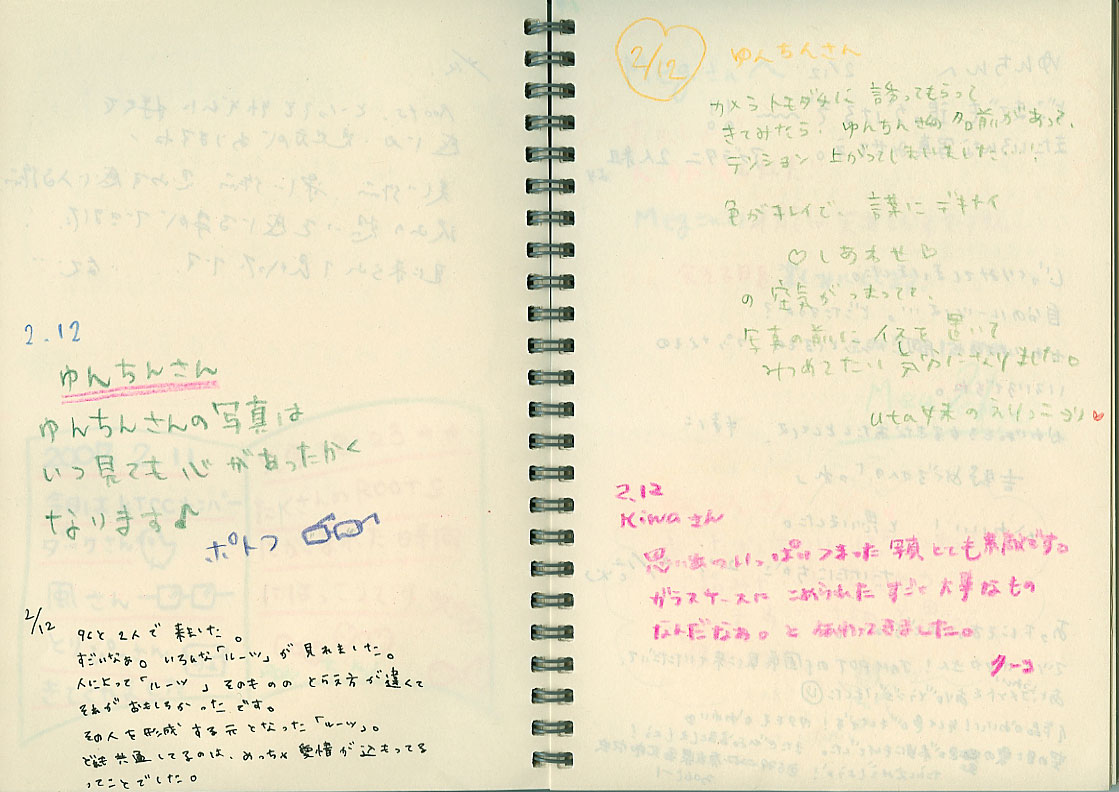 2.12
ゆんちんさん
ゆんちんさんの写真は
いつ見ても心があったかく
なります♪
ポトフ
2/12
96と2人で来ました。
すごいなぁ。いろんな「ルーツ」が見れました。
人によって「ルーツ」そのもののとらえ方が違くて
それがおもしろかったです。
その人を形成する元となった「ルーツ」。
ど共通してるのは、めっちゃ愛情が込もってる
ってことでした。
2/12 ゆんちんさん
カメラトモダチに誘ってもらって
きてみたら、ゆんちんさんの名前があって、
テンション上がってしまいました!!
色がキレイで、言葉にデキナイ
♡しあわせ♡
の空気がつまってて、
写真の前にイスを置いて
みつめてたい気分になりました。
uta
2.12
Kiwaさん
思い出のいっぱいつまった写真とても素敵です。
ガラスケースにこめられたすごく大事なもの
なんだなぁ。と伝わってきました。
クーコ